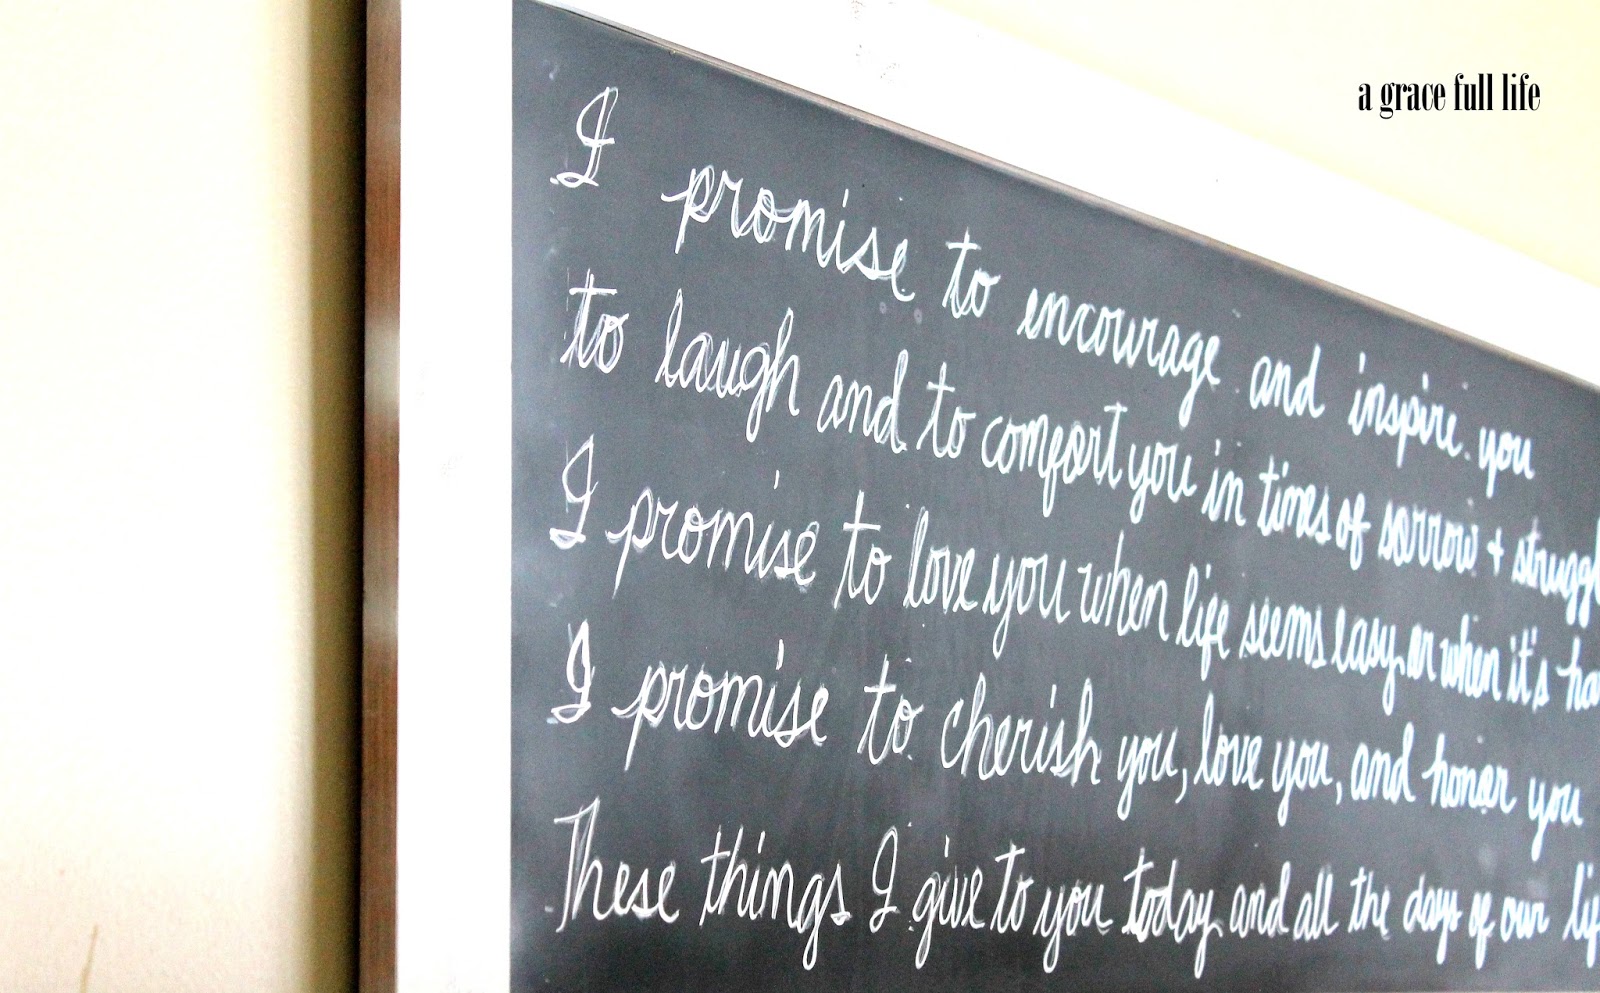 a grace full life
I promise to encourage and inspire you
to laugh and to comfort you in times of sorrow + struggl
I promise to love you when life seems easy or when it's ha
I promise to cherish you, love you, and honor you
These things I give to you today and all the days of our lif